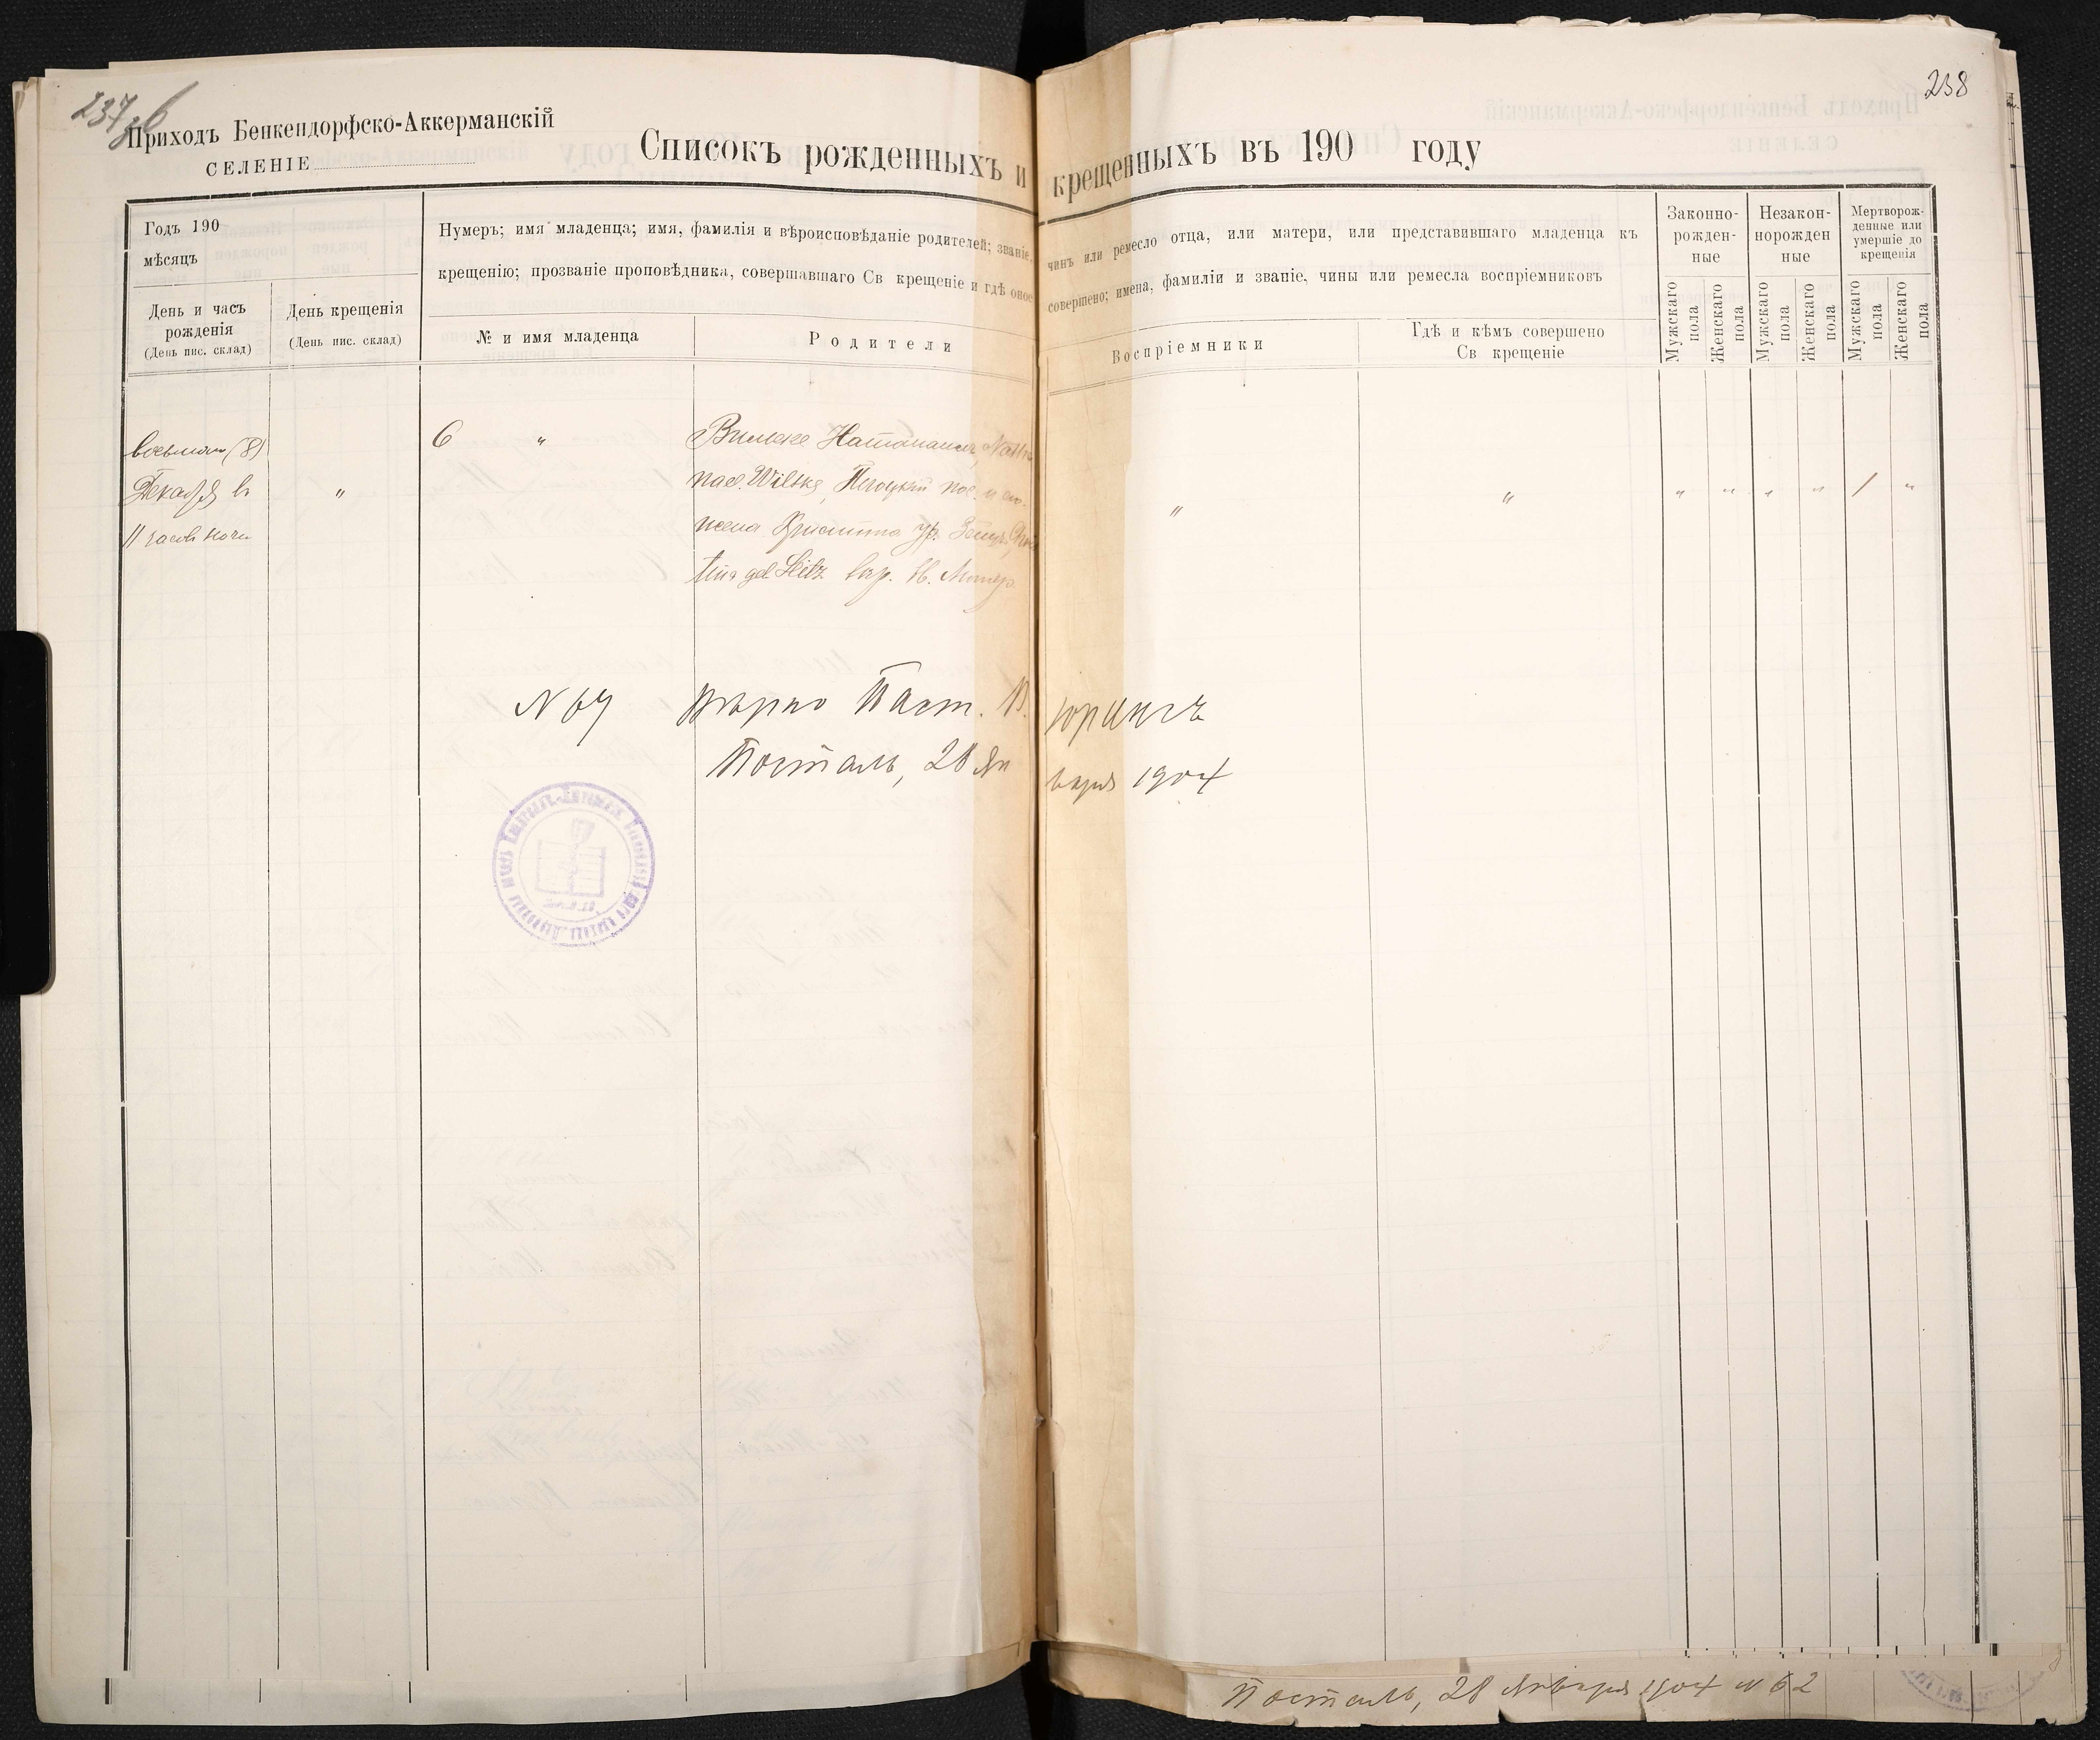 237 об
238
Приходъ Бенкендорфско-Аккерманскій
СЕЛЕНІЕ
Списокъ рожденныхъ и крещенныхъ въ 190 году
Годъ 190
мѣсяцъ
Нумеръ; имя младенца; имя, фамилія и вѣроисповѣданіе родителей; званіе, чинъ или ремесло отца, или матери, или представившаго младенца къ
крещенію; прозваніе проповѣдника, совершавшаго Св крещеніе и гдѣ оное совершено; имена, фамиліи и званіе, чины или ремесла воспріемниковъ
Законно-
рожден-
ные
Незакон-
норожден
ные
Мертворож-
денные или
умершіе до
крещенія
День и часъ
рожденія
(День пис. склад)
День крещенія
(День пис. склад)
№ и имя младенца
Родители
Воспріемники
Гдѣ и кѣмъ совершено
Св крещеніе
Мужскаго
пола
Женскаго
пола
Мужскаго
пола
Женскаго
пола
Мужскаго
пола
Женскаго
пола
(8)
Декабря въ
11 часовъ ночи
"
6 "
Вильске Натанаилъ,
nael. Wilske,
жена Христина ур. Зейцъ,
tina geb. Seitz
" " " " " " / "
N 64 вѣрно Паст. В. Юрингъ
Посталь, 28 января 1904
Посталь, 28 января 1904 N 62